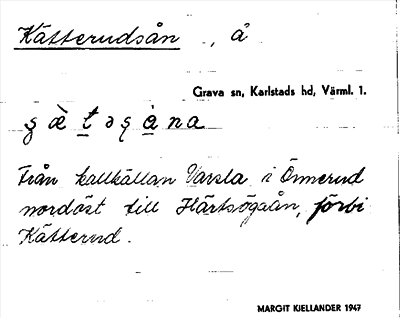 Kätterudsån , å
Grava sn, Karlstads hd, Värml. 1.
Från kallkällan Varsla i Örmerud
nordöst till Härtsögaån, förbi
Kätterud.
MARGIT KJELLANDER 1947